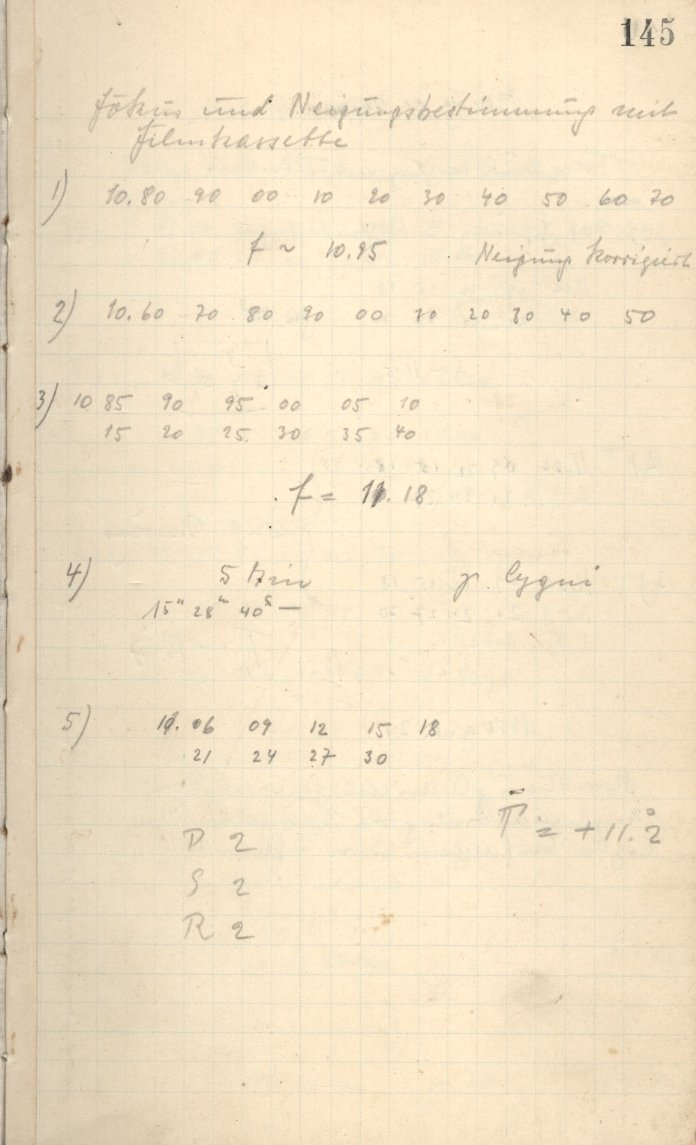 145
Fokus und Neigungsbestimmung mit
Filmkassette
1) 10.80 90 00 10 20 30 40 50 60 70
f ~ 10.95 Neigung korrigiert
2) 10.60 70 80 90 00 10 20 30 40 50
3) 10 85 90 95 00 05 10
15 20 25 30 35 40
f = 11.18
4) 5 Min γ Cygni
15ʰ 28ᵐ 40ˢ —
5) 11. 06 09 12 15 18
21 24 27 30
T = + 11.°2
D 2
S 2
R 2